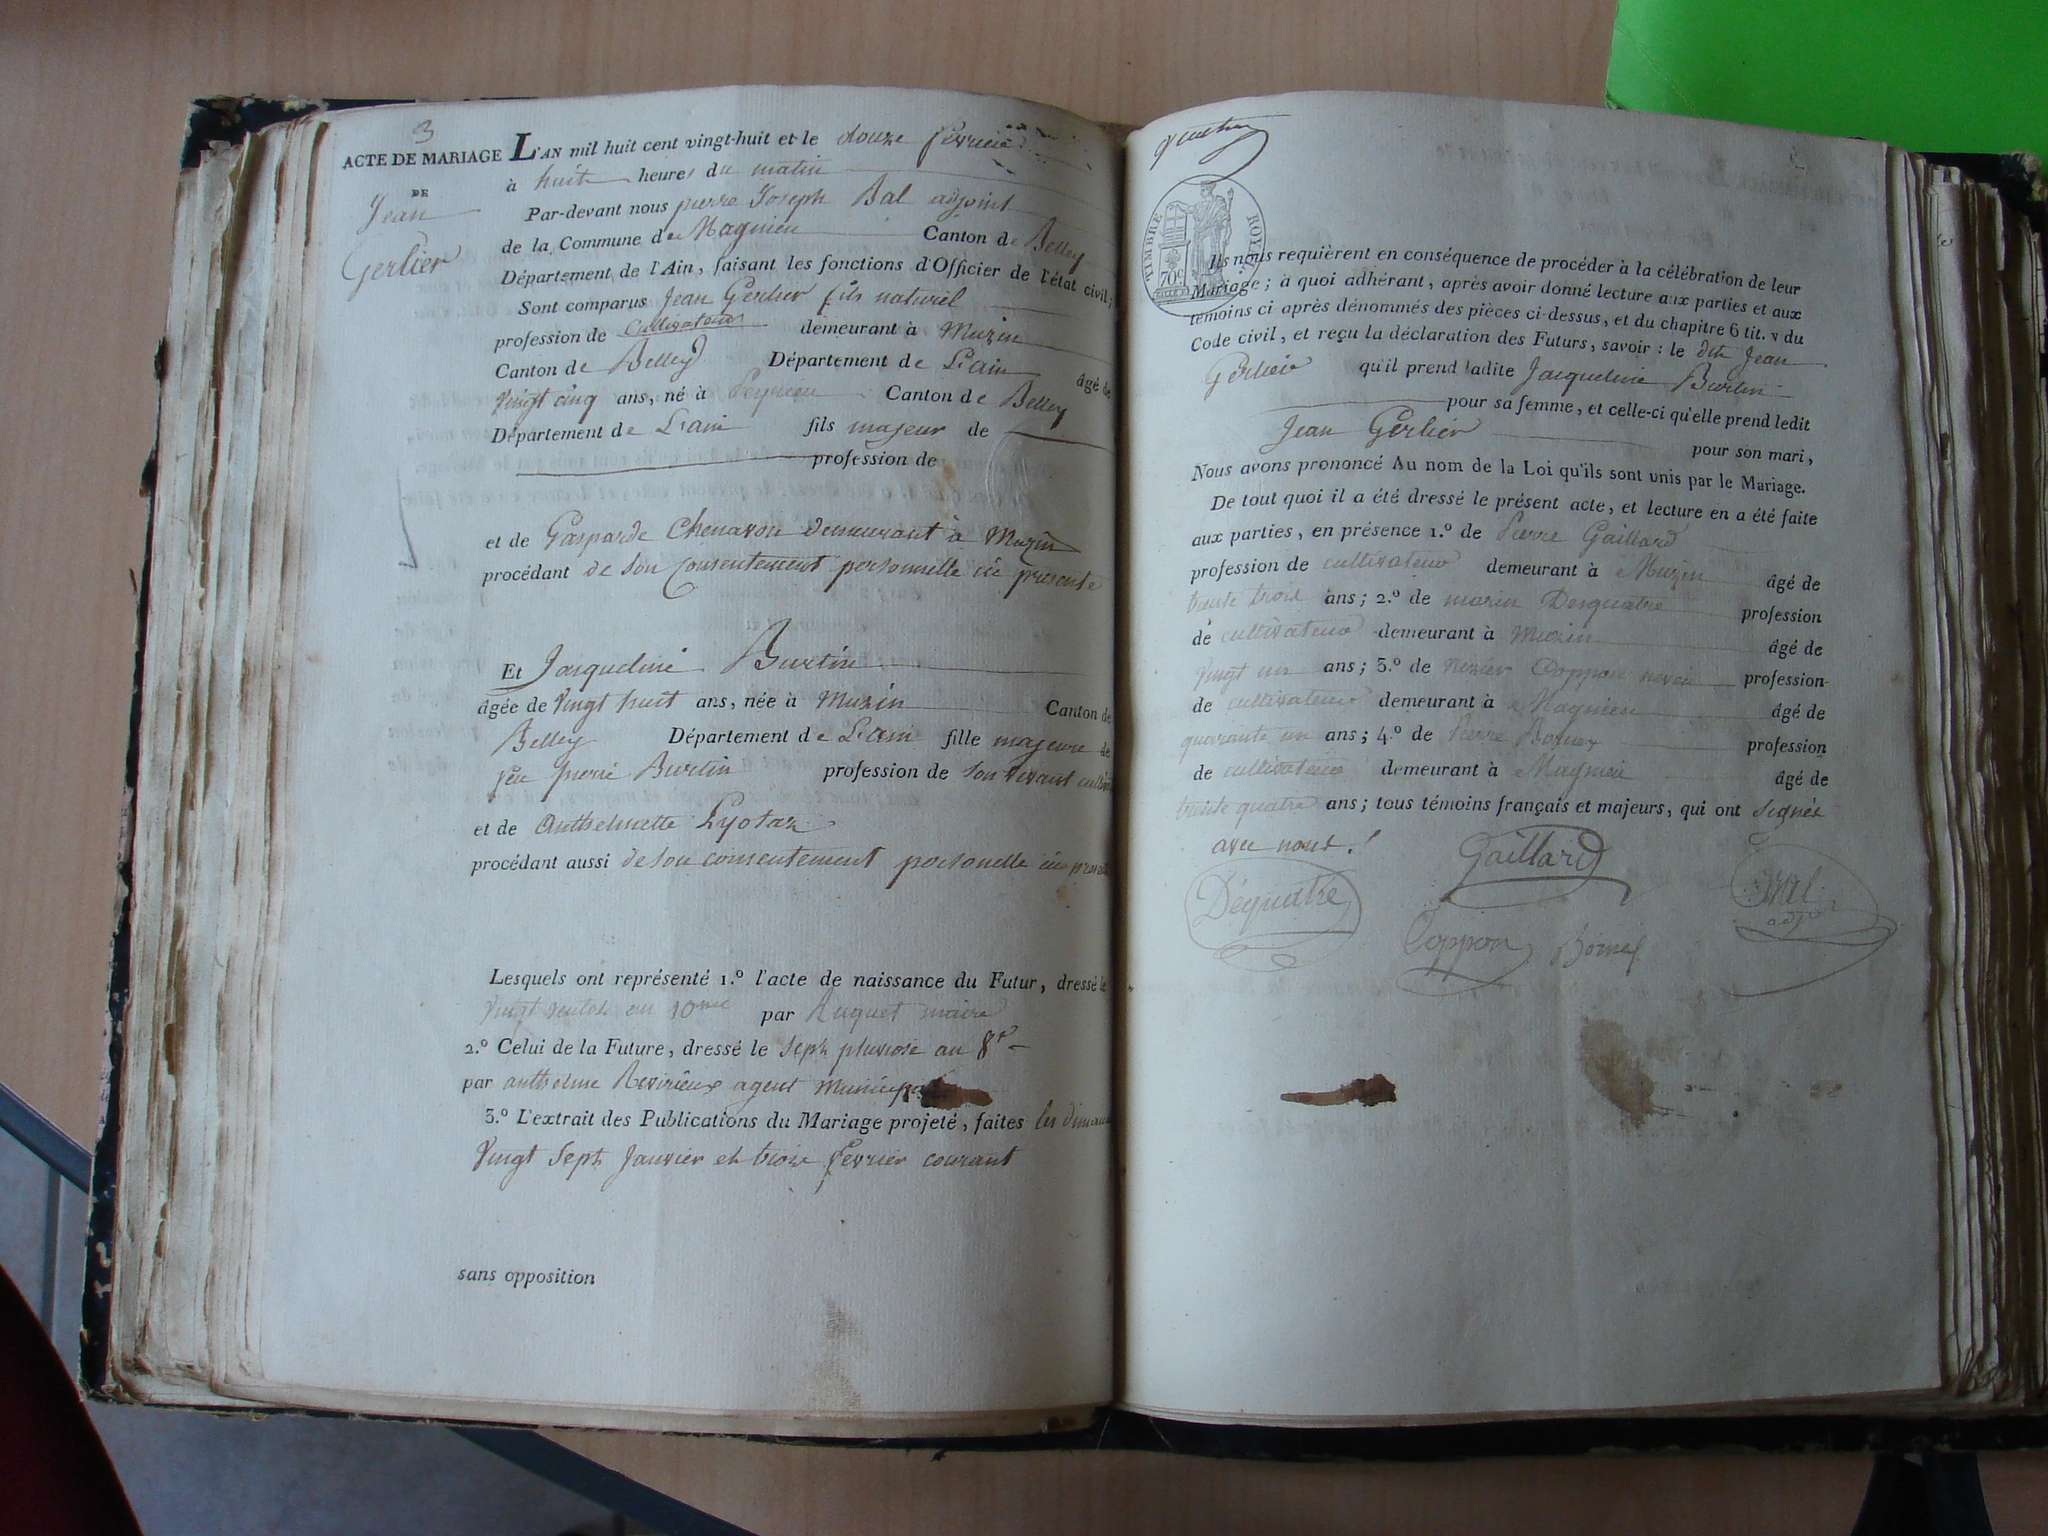 3
ACTE DE MARIAGE
DE
Jean
Gerlier
L'AN mil huit cent vingt-huit et le douze fevrier
à huit heures du matin
Par-devant nous pierre Joseph Bal adjoint
de la Commune de Magnieu Canton de Belley
Département de l'Ain, faisant les fonctions d'Officier de l'état civil;
Sont comparus Jean Gerlier fils naturel
profession de Cultivateur demeurant à Muzin
Canton de Belley Département de L'ain âgé de
vingt cinq ans, né à Peyrieu Canton de Belley
Département de L'ain fils majeur de
profession de
et de Gasparde Chenavon demeurant à Muzin
procédant de son Consentement personnelle ici presente
Et Jacqueline Burtin
âgée de vingt huit ans, née à Muzin Canton de
Belley Département de L'ain fille majeure de
feu pierre Burtin profession de son vivant
et de Anthelmette Lyotaz
procédant aussi de son consentement personelle
Lesquels ont représenté 1.º l'acte de naissance du Futur, dressé le
Vingt an 10me par Ruquet maire
2.º Celui de la Future, dressé le sept pluviose an 8e
par anthelme Revirieux agent
3.º L'extrait des Publications du Mariage projeté, faites les
Vingt Sept Janvier et trois fevrier courant
sans opposition
TIMBRE ROYAL
70 c.
Ils nous requièrent en conséquence de procéder à la célébration de leur
Mariage; à quoi adhérant, après avoir donné lecture aux parties et aux
témoins ci après dénommés des pièces ci-dessus, et du chapitre 6 tit. v du
Code civil, et reçu la déclaration des Futurs, savoir : le dit Jean
Gerlier qu'il prend ladite Jacqueline Burtin
pour sa femme, et celle-ci qu'elle prend ledit
Jean Gerlier pour son mari,
Nous avons prononcé Au nom de la Loi qu'ils sont unis par le Mariage.
De tout quoi il a été dressé le présent acte, et lecture en a été faite
aux parties, en présence 1.º de Pierre Gaillard
profession de cultivateur demeurant à Muzin âgé de
trente trois ans; 2.º de marin Desquatre profession
de cultivateur demeurant à Muzin âgé de
vingt un ans; 3.º de nizier Coppon neveu profession
de cultivateur demeurant à Magnieu âgé de
quarante un ans; 4.º de Pierre Bornex profession
de cultivateur demeurant à Magnieu âgé de
trente quatre ans; tous témoins français et majeurs, qui ont signés
avec nous.
Gaillard
Déquatre
Bal
adj
Coppon
Bornex